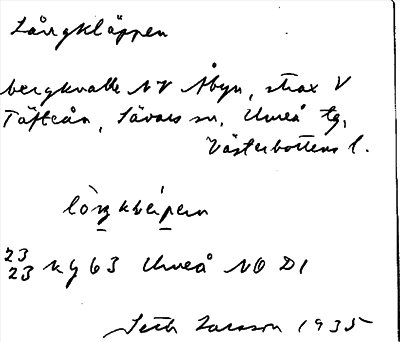 Långkläppen
bergkulle NV Åbyn, strax V
Täfteån, Sävars sn, Umeå tg,
Västerbottens l.
23
23 Ny 63 Umeå NO D1
Seth Larsson 1935